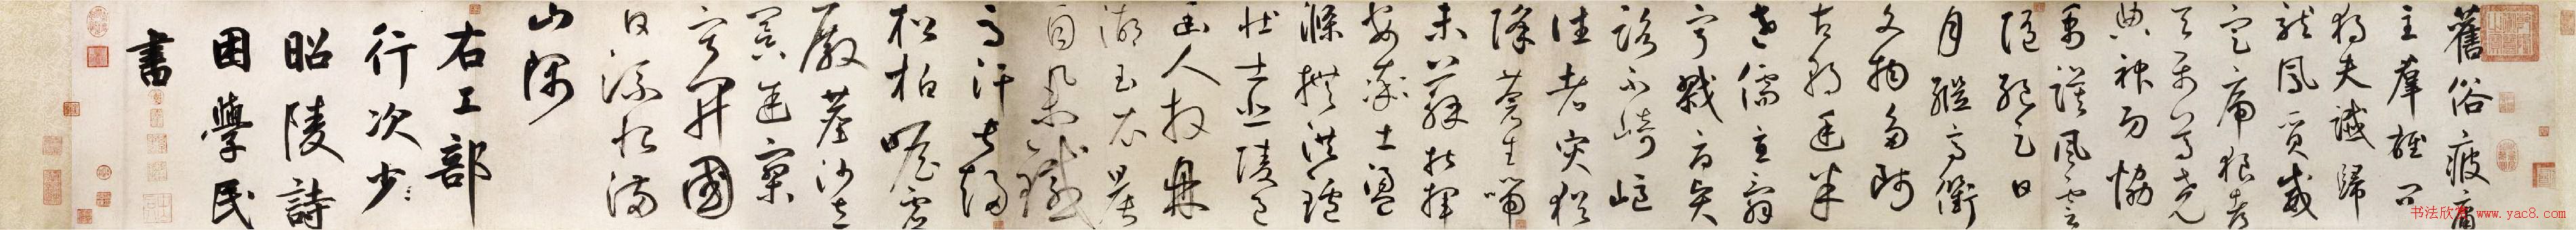 舊俗疲庸
主羣雄問
獨夫讖歸
龍鳳質威
定虎狼都
天屬尊堯
典神功協
禹謨風雲
隨絕足日
月繼高衢
文物多師
古朝廷半
老儒直詞
寧戮辱賢
路不崎嶇
往者灾猶
降蒼生喘
未蘇指揮
安率土盪
滌撫洪爐
壯士悲陵邑
幽人拜鼎
湖玉衣晨
自舉鐵
馬汗常趨
松柏瞻虛
殿塵沙立
暝途寂
寥開國
日流恨滿
山隅
右工部
行次少
昭陵詩
困學民
書
书法欣赏 www.yac8.com